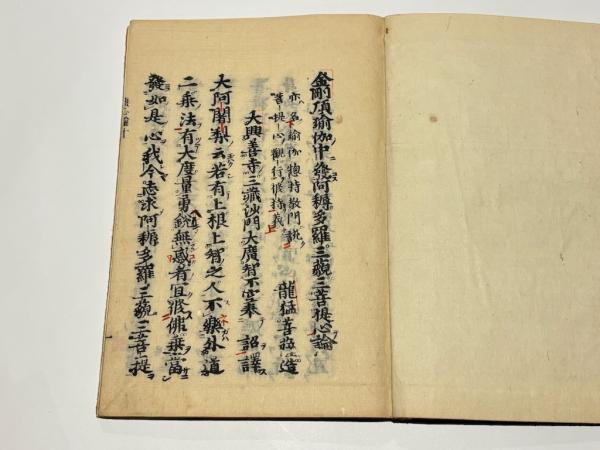 金剛頂瑜伽中發阿耨多羅三藐三菩提心論
亦名瑜伽惣持教門説
菩提心觀行修持義
龍猛菩薩造
大興善寺三藏沙門大廣智不空奉 詔譯
大阿闍梨云若有上根上智之人不樂外道
二乘法有大度量勇鋭無惑者宜修佛乘當
發如是心我今志求阿耨多羅三藐三菩提